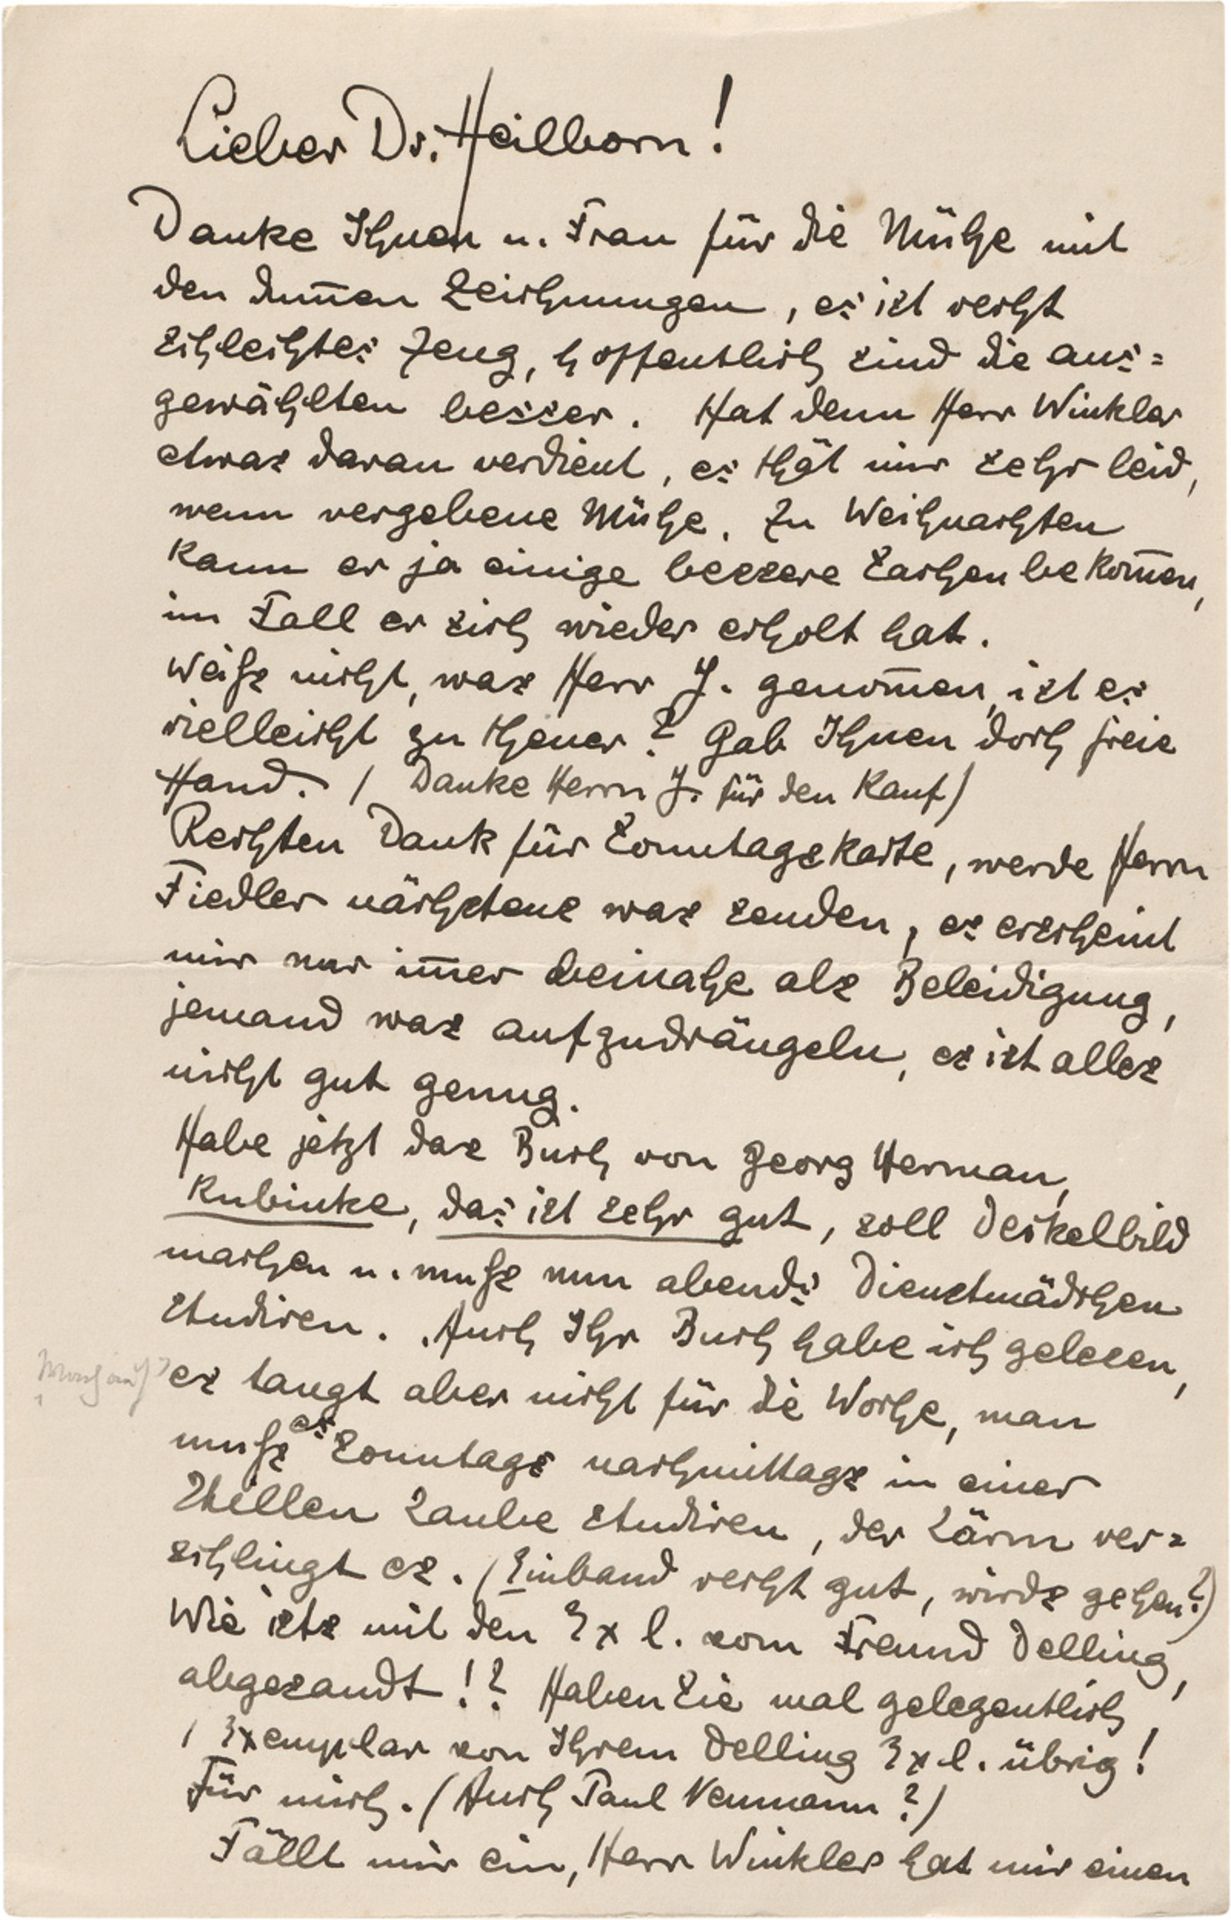 Lieber Dr. Heilborn!
Danke Ihnen u. Frau für die Mühe mit
den dum̅en Zeichnungen, es ist recht
schlechtes Zeug, hoffentlich sind die aus=
gewählten besser. Hat denn Herr Winkler
etwas daran verdient, es thät mir sehr leid,
wenn vergebene Mühe. Zu Weihnachten
kann er ja einige bessere Sachen bekom̅en,
im Fall er sich wieder erholt hat.
Weiss nicht, was Herr J. genom̅en, ist es
vielleicht zu theuer? Gab Ihnen doch freie
Hand. (Danke Herrn J. für den Kauf)
Rechten Dank für Sonntagskarte, werde Herrn
Fiedler nächstens was senden, es erscheint
mir nur im̅er beinahe als Beleidigung,
jemand was aufzudrängeln, es ist alles
nicht gut genug.
Habe jetzt das Buch von Georg Herman,
Kubinke, das ist sehr gut, soll Deckelbild
machen u. muss nun abends Dienstmädchen
studiren. Auch Ihr Buch habe ich gelesen,
es taugt aber nicht für die Woche, man
muss es Sonntags nachmittags in einer
Stillen Laube studiren, der Lärm ver=
schlingt es. (Einband recht gut, wirds gehen?)
Wie ists mit den Exl. vom Freund Delling,
abgesandt!? Haben Sie mal gelegentlich
1 Exemplar von Ihrem Delling Exl. übrig!
Für mich. (Auch Paul Neumann?)
Fällt mir ein, Herr Winkler hat mir einen